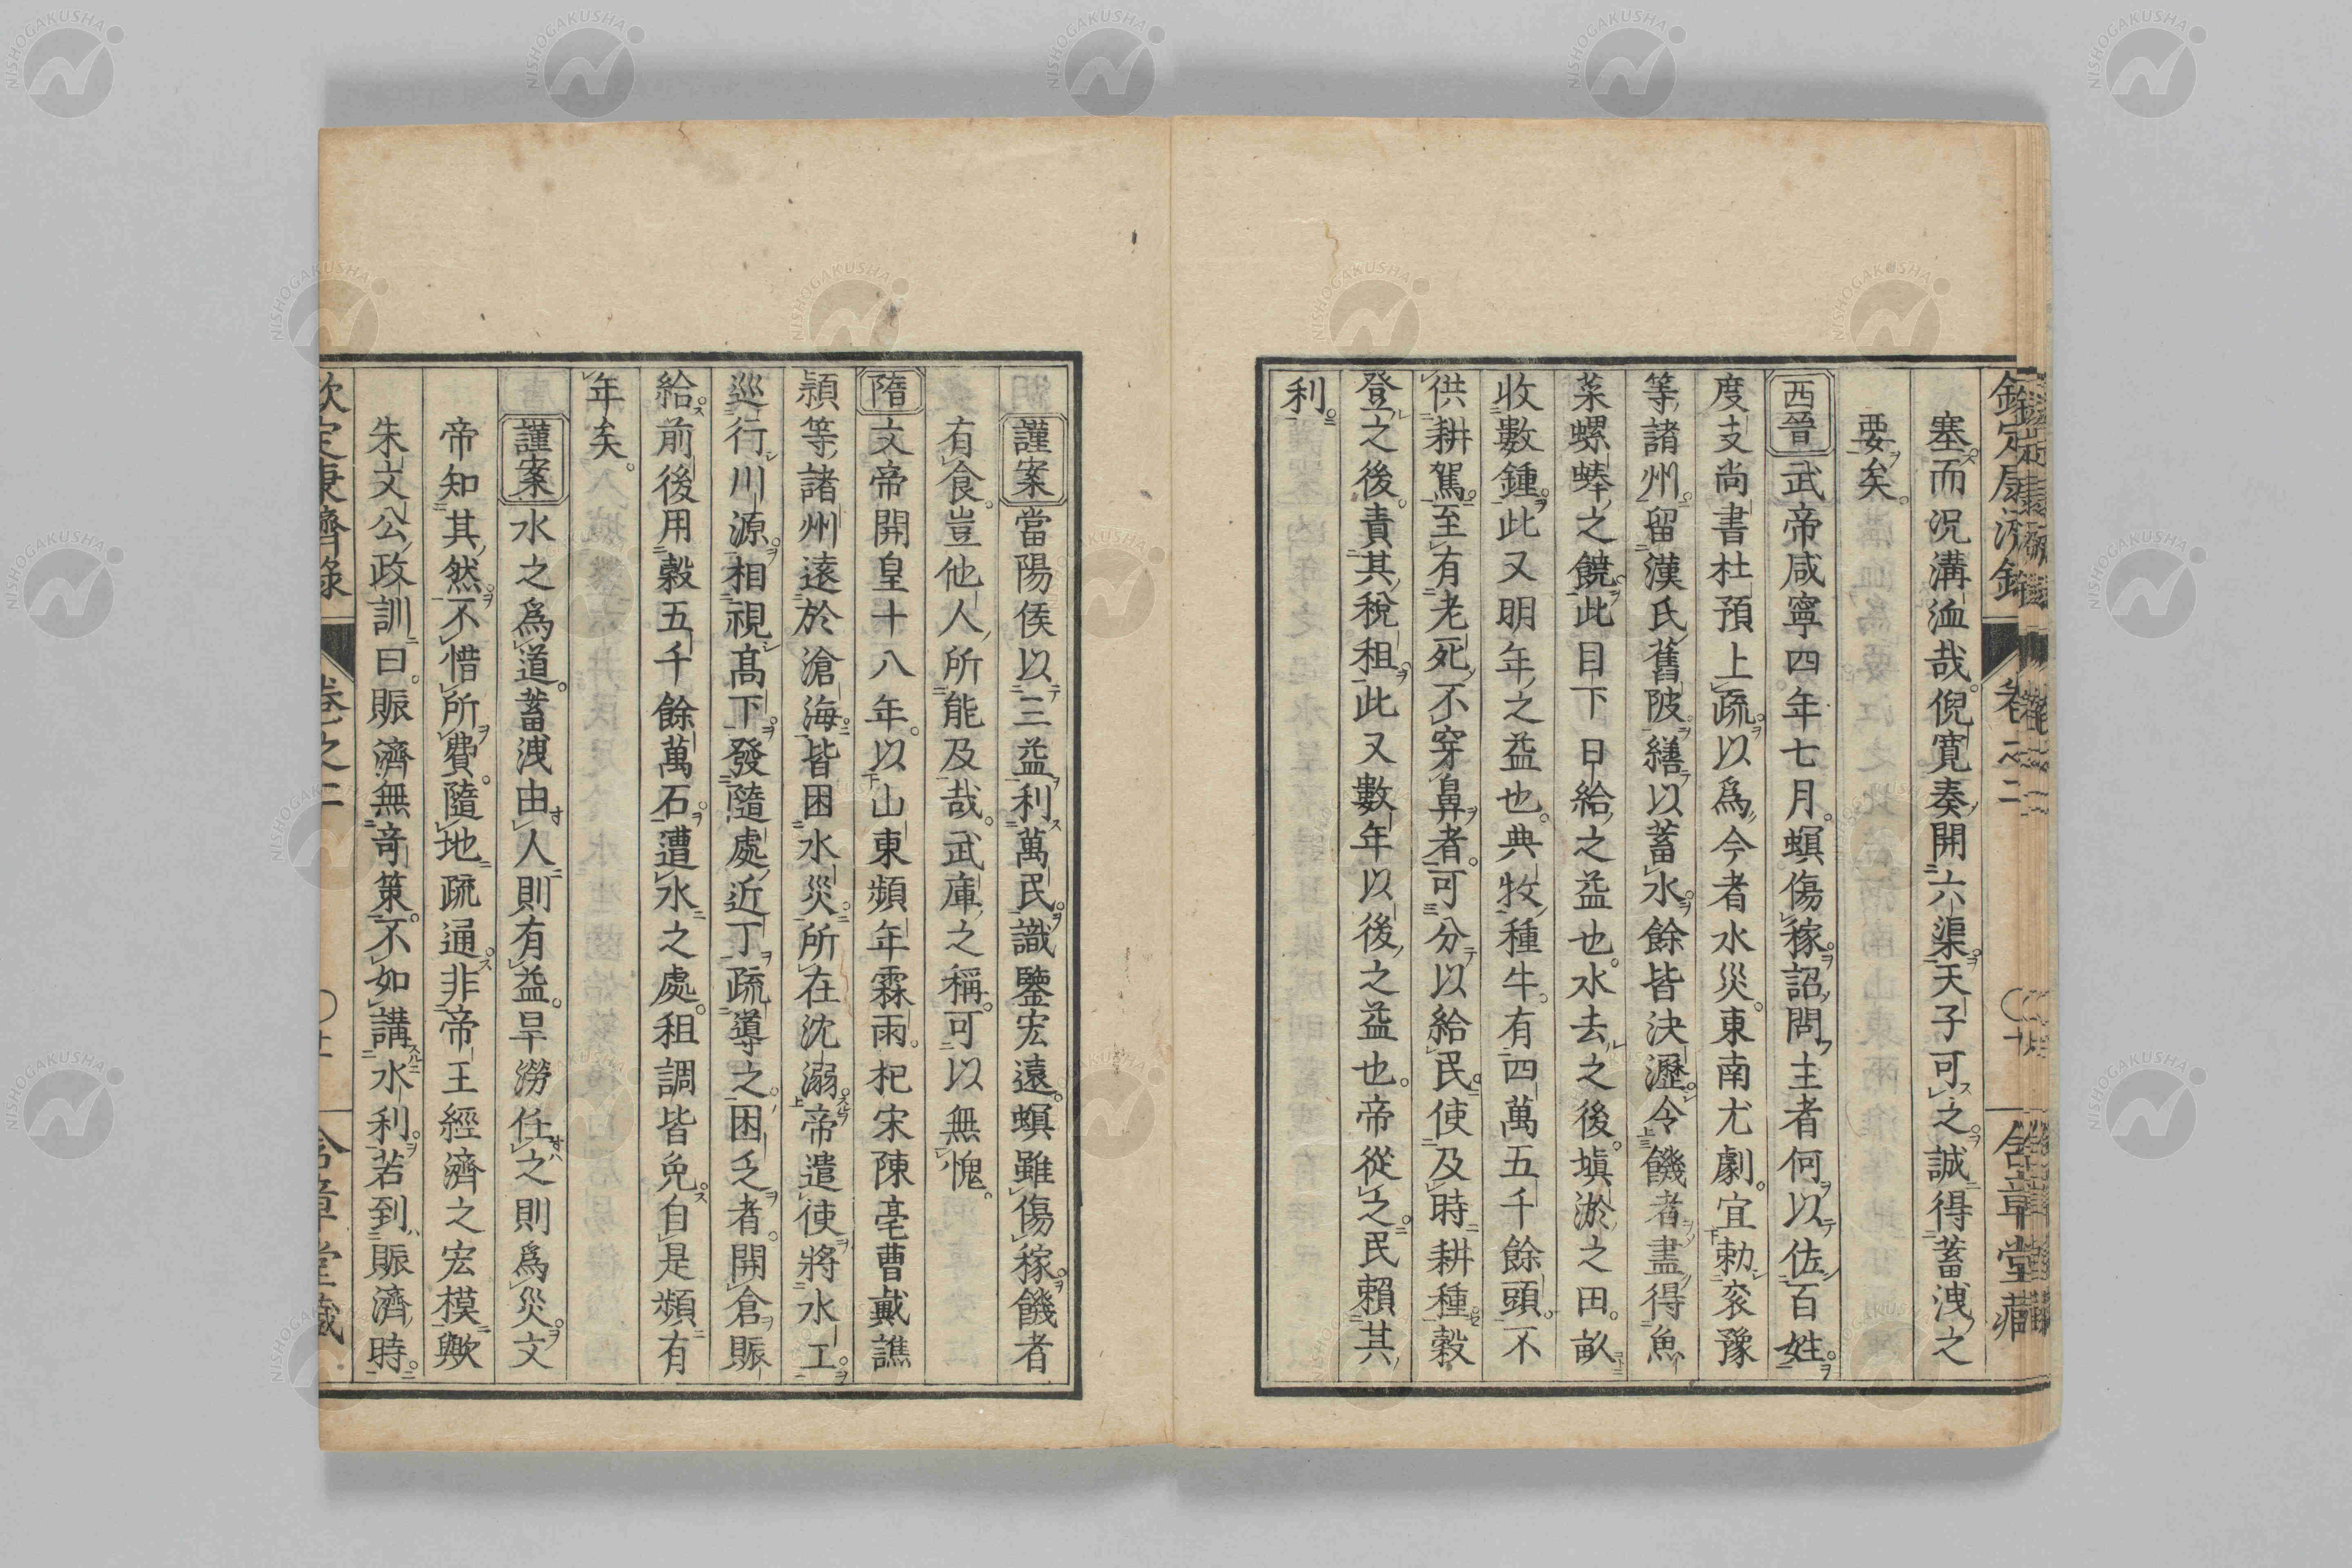 塞而況溝洫哉倪寬奏開六渠天子可之誠得蓄洩之
要矣
西晉武帝咸寧四年七月螟傷稼詔問主者何以佐百姓
度支尚書杜預上疏以爲今者水災東南尤劇宜勅兗豫
等諸州留漢氏舊陂繕以蓄水餘皆決瀝令饑者盡得魚
菜螺蜯之饒此目下日給之益也水去之後塡淤之田畝
收數鍾此又明年之益也典牧種牛有四萬五千餘頭不
供耕駕至有老死不穿鼻者可分以給民使及時耕種穀
登之後責其稅租此又數年以後之益也帝從之民賴其
利
謹案當陽侯以三益利萬民識鑒宏遠螟雖傷稼饑者
有食豈他人所能及哉武庫之稱可以無愧
隋文帝開皇十八年以山東頻年霖雨杞宋陳亳曹戴譙
潁等諸州遠於滄海皆困水災所在沈溺帝遣使將水工
巡行川源相視高下發隨處近丁疏導之困乏者開倉賑
給前後用穀五千餘萬石遭水之處租調皆免自是頻有
年矣
謹案水之爲道蓄洩由人則有益旱澇任之則爲災文
帝知其然不惜所費隨地疏通非帝王經濟之宏模歟
朱文公政訓曰賑濟無竒策不如講水利若到賑濟時
欽定康濟錄 卷之二
NISHOGAKUSHA